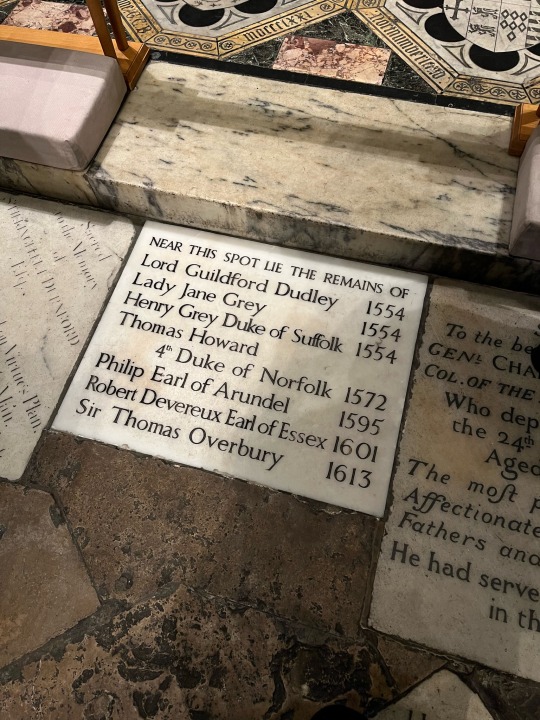 MDCCCLXXI
Sacred
to the Memory
of
Esq.
NEAR THIS SPOT LIE THE REMAINS OF
Lord Guildford Dudley 1554
Lady Jane Grey 1554
Henry Grey Duke of Suffolk 1554
Thomas Howard
4th Duke of Norfolk 1572
Philip Earl of Arundel 1595
Robert Devereux Earl of Essex 1601
Sir Thomas Overbury 1613
To the be
GENL CHA
COL. OF THE
Who dep
the 24th
Aged
The most p
Affectionate
Fathers and
He had serve
in th